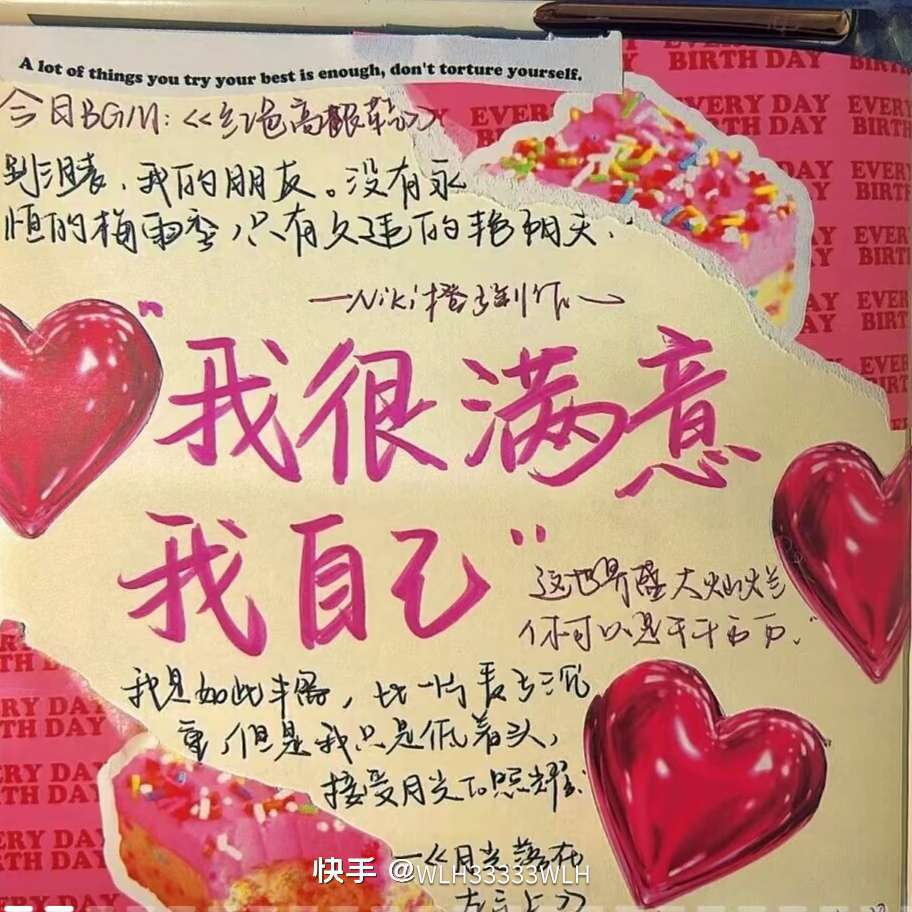 A lot of things you try your best is enough, don't torture yourself.
今日BGM:《红色高跟鞋》
别沮丧、我的朋友。没有永
恒的梅雨季,只有久违的艳阳天.
—Niki橙子制作—
"我很满意
我自己"
这世界盛大灿烂
你可以是千千万万."
我是如此丰盛,比一片麦子沉
重,但是我只是低着头,
接受月光的照耀.
—《月光落在
左手上》
EVERY DAY
BIRTH DAY
快手 @WLH33333WLH